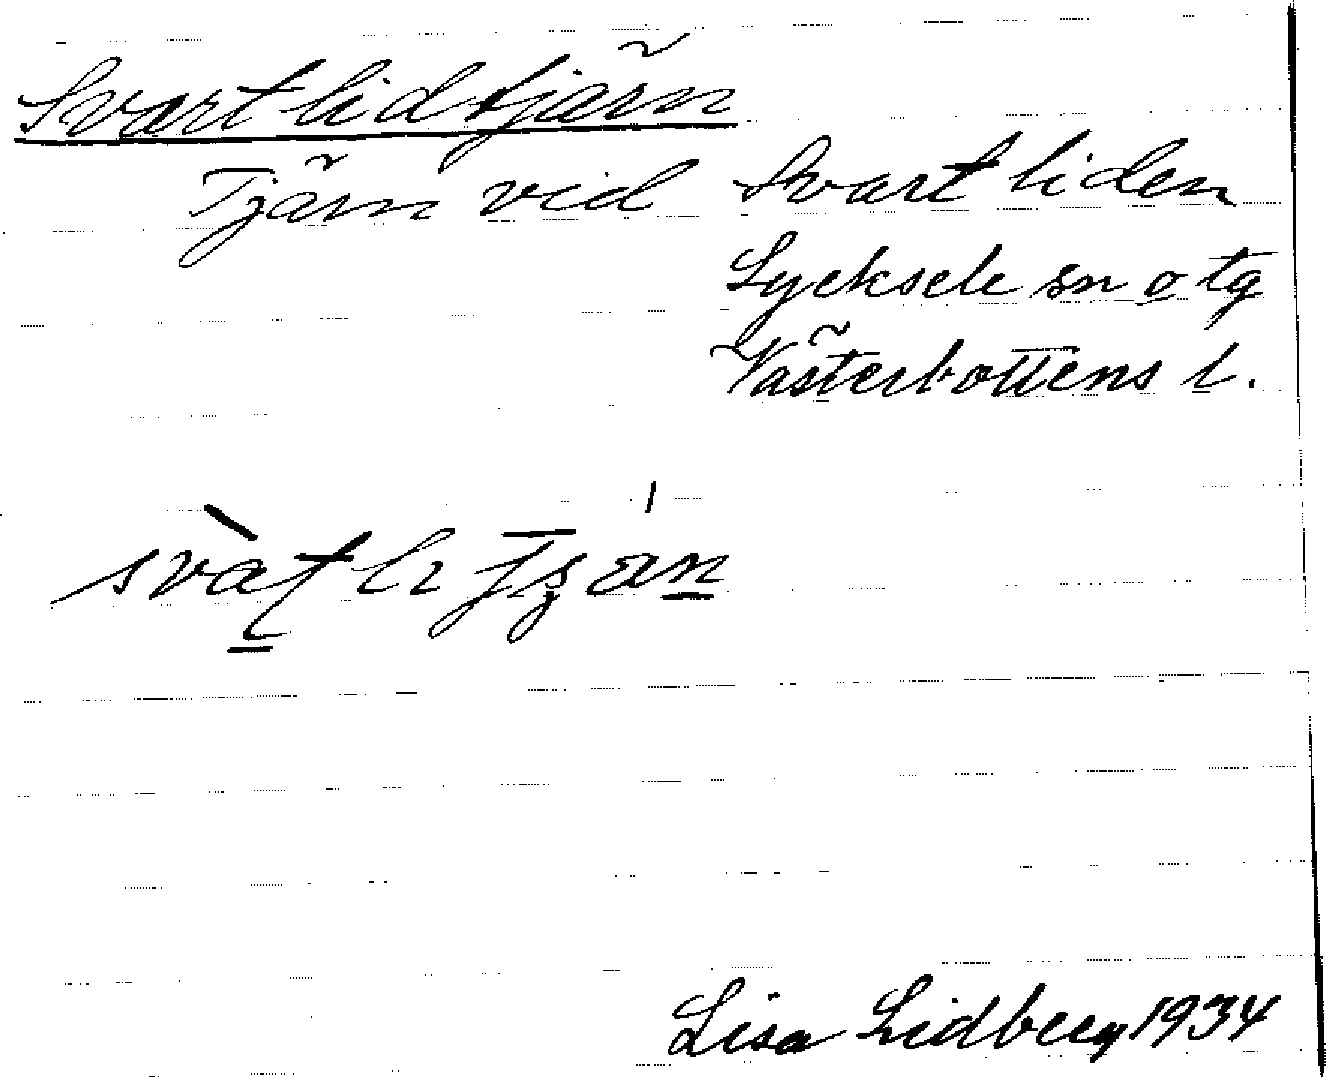 Svartlidtjärn
Tjärn vid Svartliden
Lycksele sn o tg
Västerbottens l.
Lisa Lidberg 1934